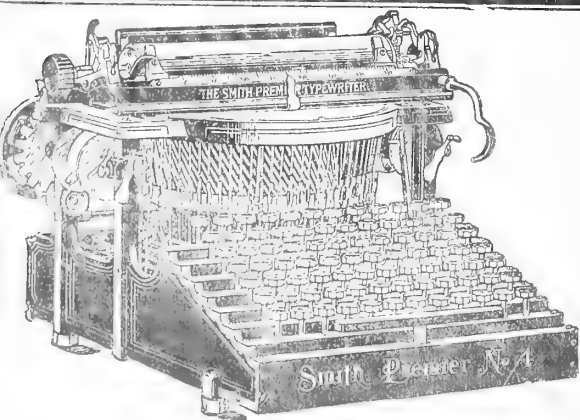 THE SMITH PREMI TYPEWRITER
Smith Premier No 4